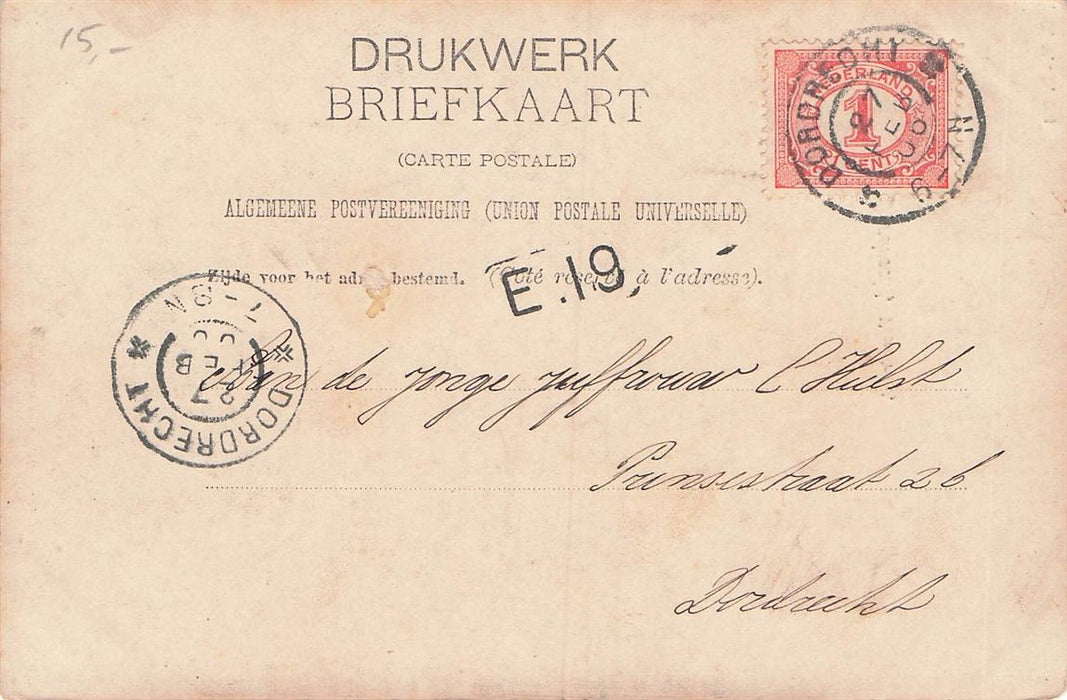 15,-
DRUKWERK
BRIEFKAART
(CARTE POSTALE)
ALGEMEENE POSTVEREENIGING (UNION POSTALE UNIVERSELLE)
Zijde voor het adres bestemd. (Côté réservé à l'adresse).
NEDERLAND
1
CENT
DORDRECHT
27 FEB
6-7N
E.19,
DORDRECHT
27 FEB
7-8N
Aan de jonge juffrouw C Hulst
Prinsestraat 26
Dordrecht